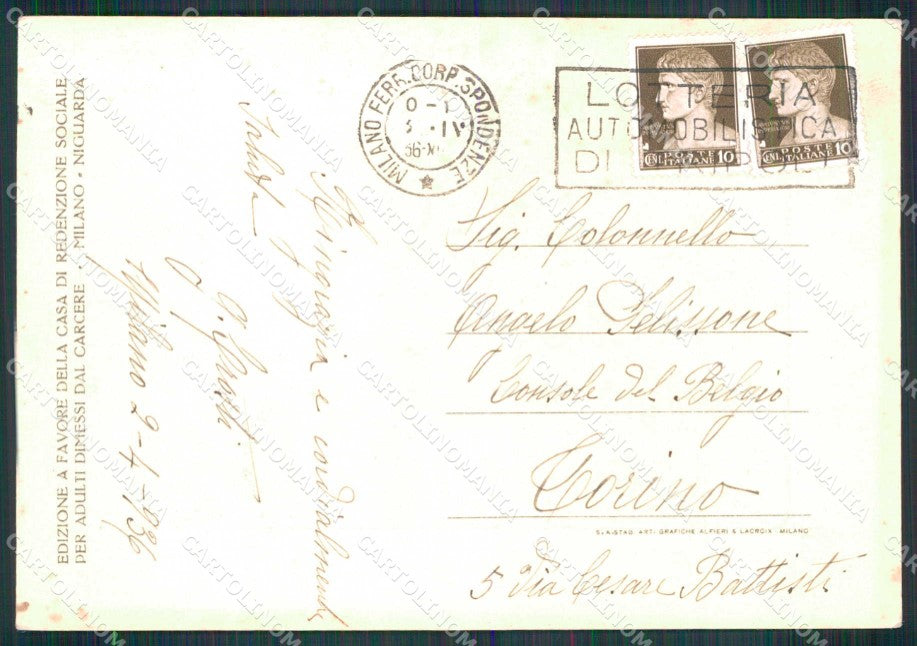 EDIZIONE A FAVORE DELLA CASA DI REDENZIONE SOCIALE
PER ADULTI DIMESSI DAL CARCERE - MILANO - NIGUARDA
Ringrazia e cordialmente
Saluta
Milano 2-4-1936
MILANO FERR. CORRISPONDENZE
LOTTERIA
AUTOMOBILISTICA
DI TRIPOLI
CENT. POSTE ITALIANE 10
CENT. POSTE ITALIANE 10
Sig. Colonnello
Angelo Pelissone
Console del Belgio
Torino
S. A. STAB. ARTI GRAFICHE ALFIERI & LACROIX - MILANO
5 Via Cesare Battisti
CARTOLINOMANIA